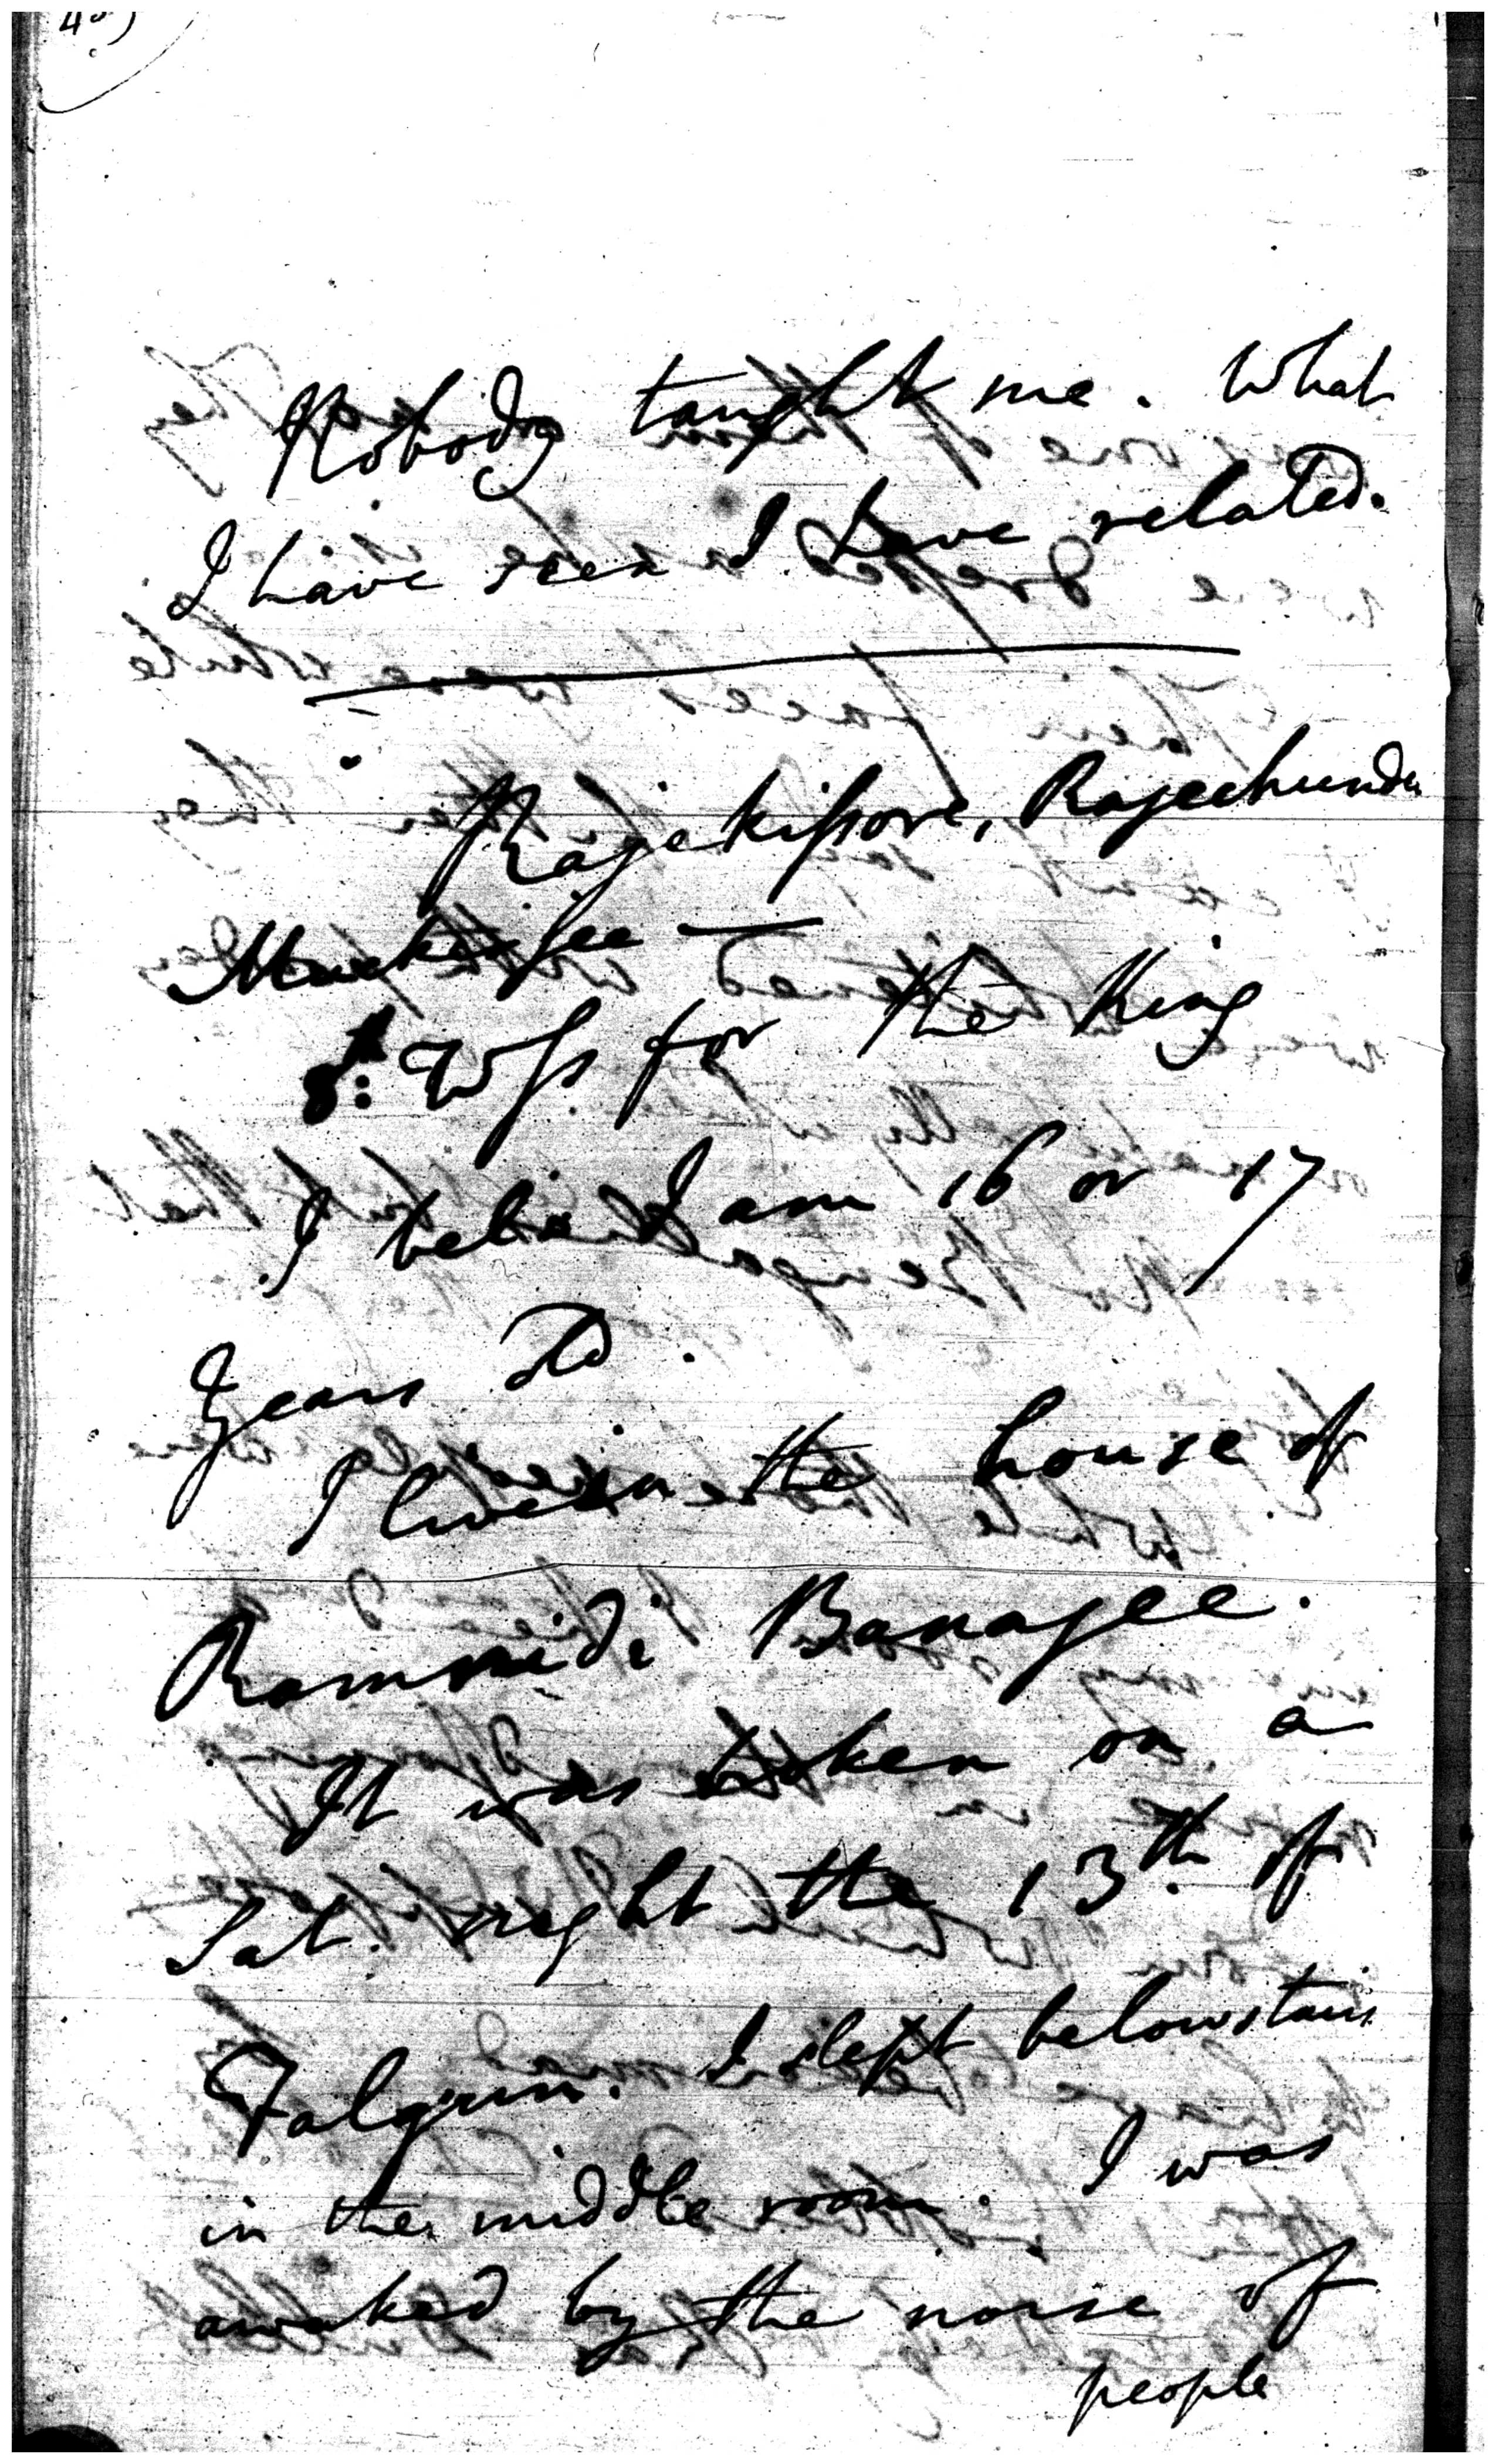 Nobody taught me. What
I have seen I have related.
Rajekissore, Rajeechunder
Muckerjee —
8: Wss for the King
I believe I am 16 or 17
Years old.
I live in the house of
Ramnidi Banajee.
It was broken on a
Sat. night the 13th of
Falgun. I slept belowstairs
in the middle room. I was
awaked by the noise of
people